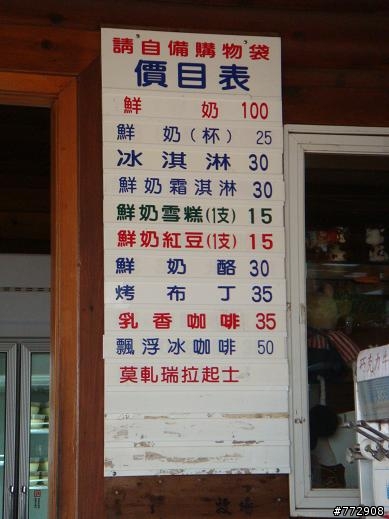 請自備購物袋
價目表
鮮奶 100
鮮奶(杯) 25
冰淇淋 30
鮮奶霜淇淋 30
鮮奶雪糕(1支) 15
鮮奶紅豆(1支) 15
鮮奶酪 30
烤布丁 35
乳香咖啡 35
飄浮冰咖啡 50
莫軋瑞拉起士
#772908